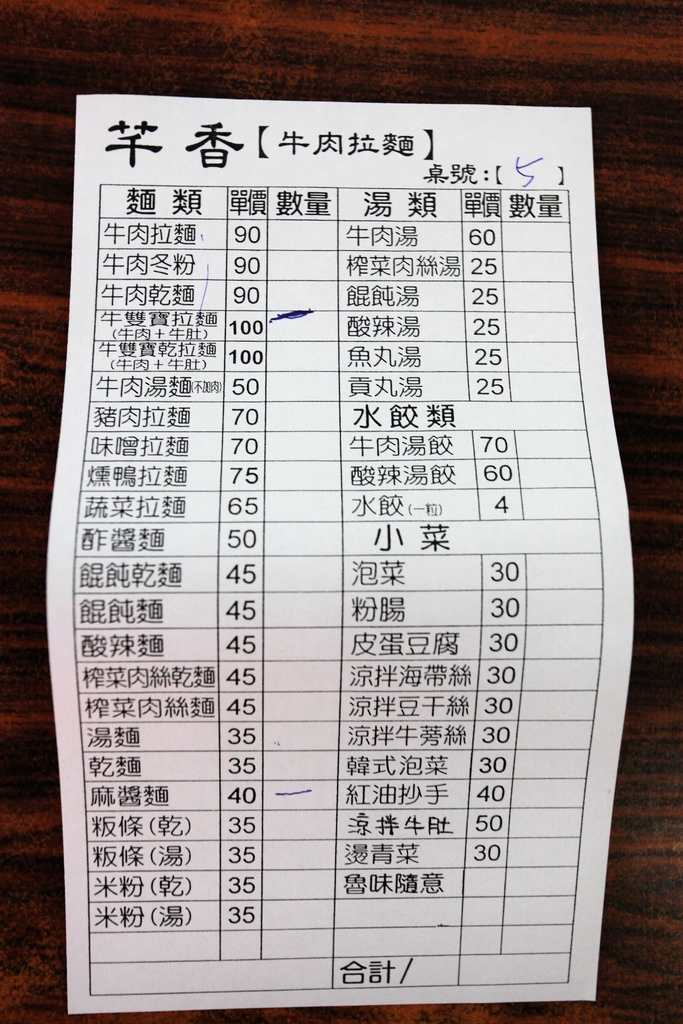 芊香【牛肉拉麵】
桌號:【 5 】
麵類 單價 數量 湯類 單價 數量
牛肉拉麵 90 牛肉湯 60
牛肉冬粉 90 榨菜肉絲湯 25
牛肉乾麵 90 餛飩湯 25
牛雙寶拉麵(牛肉+牛肚) 100 一 酸辣湯 25
牛雙寶乾拉麵(牛肉+牛肚) 100 魚丸湯 25
牛肉湯麵(不加肉) 50 貢丸湯 25
豬肉拉麵 70 水餃類
味噌拉麵 70 牛肉湯餃 70
燻鴨拉麵 75 酸辣湯餃 60
蔬菜拉麵 65 水餃(一粒) 4
酢醬麵 50 小菜
餛飩乾麵 45 泡菜 30
餛飩麵 45 粉腸 30
酸辣麵 45 皮蛋豆腐 30
榨菜肉絲乾麵 45 涼拌海帶絲 30
榨菜肉絲麵 45 涼拌豆干絲 30
湯麵 35 涼拌牛蒡絲 30
乾麵 35 韓式泡菜 30
麻醬麵 40 一 紅油抄手 40
粄條(乾) 35 涼拌牛肚 50
粄條(湯) 35 燙青菜 30
米粉(乾) 35 魯味隨意
米粉(湯) 35
合計/